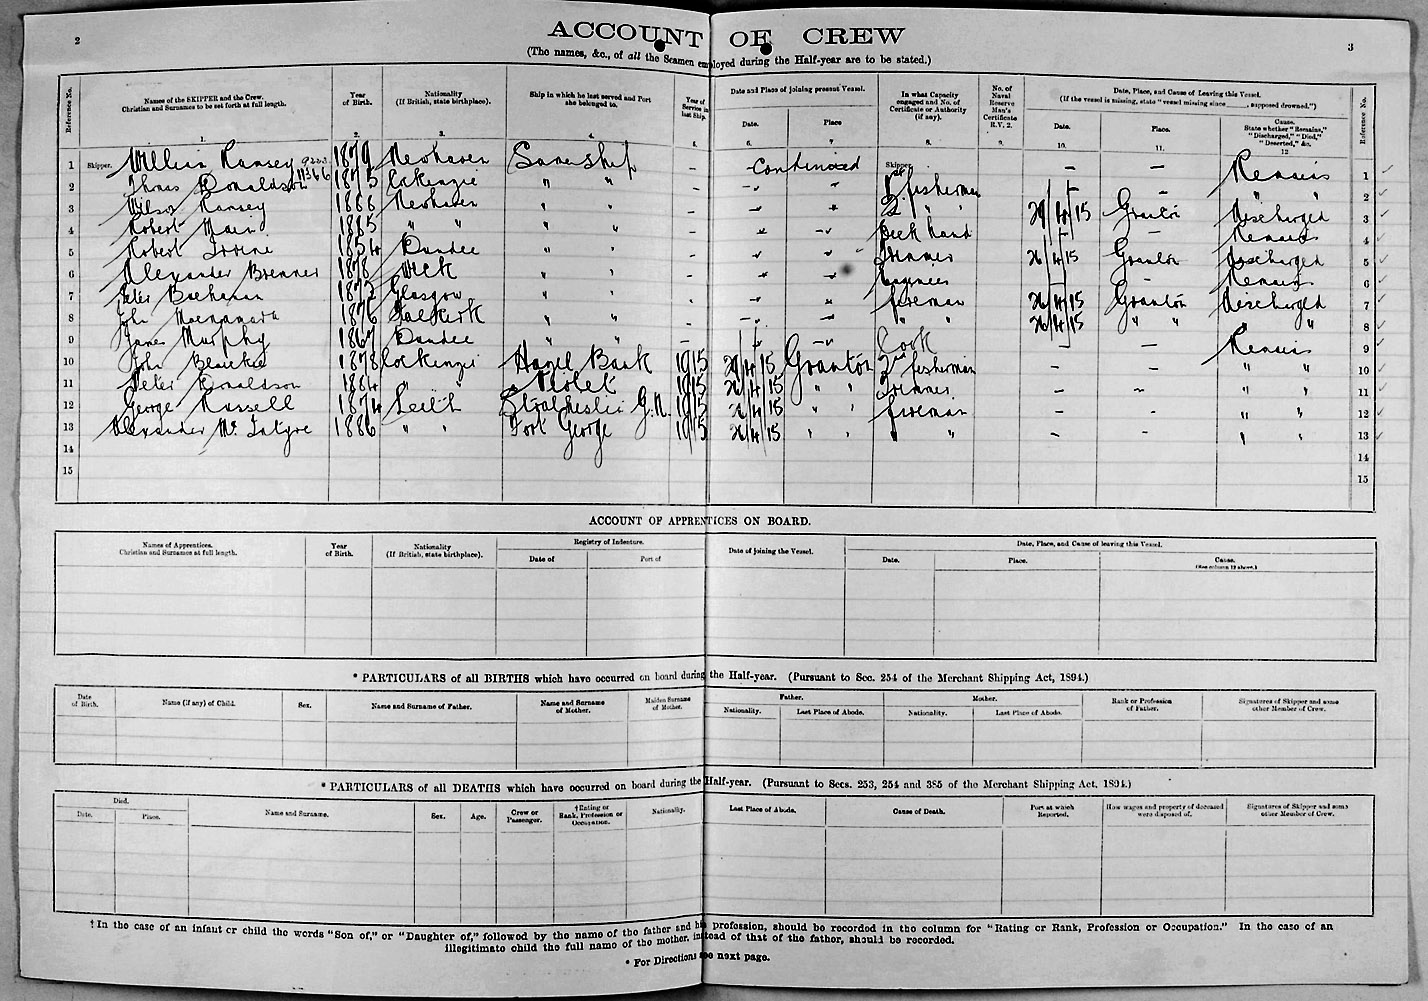 2
ACCOUNT OF CREW
3
(The names, &c., of all the Seamen employed during the Half-year are to be stated.)
Reference No.
Names of the SKIPPER and the Crew.
Christian and Surnames to be set forth at full length.
1.
Year of Birth.
2.
Nationality
(If British, state birthplace).
3.
Ship in which he last served and Port she belonged to.
4.
Year of Service in last Ship.
5.
Date and Place of joining present Vessel.
Date.
6.
Place
7
In what Capacity engaged and No. of Certificate or Authority (if any).
8.
No. of Naval Reserve Man's Certificate R.V. 2.
9.
Date, Place, and Cause of Leaving this Vessel.
(If the vessel is missing, state "vessel missing since ____, supposed drowned.")
Date.
10.
Place.
11.
Cause.
State whether "Remains," "Discharged," "Died," "Deserted," &c.
12
Reference No.
1 Skipper. William Ramsey 9223 1879 Newhaven Same ship – Continued Skipper – – Remains 1
2 Thomas Donaldson 11366 1875 Cockenzie " " – " " 1st fisherman – – " " 2
3 Wilson Ramsey 1886 Newhaven " " – " " 2 " " 29/4/15 Granton Discharged 3
4 Robert Main 1885 " " " " – " " Deck hand – – Remains 4
5 Robert Irvine 1854 Dundee " " – " " Trimmer 26/4/15 Granton Discharged 5
6 Alexander Bremner 1878 Wick " " – " " Engineer – – Remains 6
7 Peter Buchanan 1872 Glasgow " " – " " fireman 26/4/15 Granton Discharged 7
8 John Macnamara 1876 Falkirk " " – " " " " 26/4/15 " " " " 8
9 James Murphy 1867 Dundee " " – " " Cook – – Remains 9
10 John Blackie 1878 Cockenzie Hazel Bank 1915 29/4/15 Granton 2nd fisherman – – " " 10
11 Peter Donaldson 1884 " Violet 1915 26/4/15 " " Trimmer – – " " 11
12 George Russell 1874 Leith Strathleslie G.N. 1915 26/4/15 " " fireman – – " " 12
13 Alexander Mc Intyre 1886 " " Fort George 1915 26/4/15 " " " " – – " " 13
14 14
15 15
ACCOUNT OF APPRENTICES ON BOARD.
Names of Apprentices.
Christian and Surnames at full length.
Year of Birth.
Nationality
(If British, state birthplace).
Registry of Indenture.
Date of
Port of
Date of joining the Vessel.
Date, Place, and Cause of leaving this Vessel.
Date.
Place.
Cause.
(See column 12 above.)
* PARTICULARS of all BIRTHS which have occurred on board during the Half-year. (Pursuant to Sec. 254 of the Merchant Shipping Act, 1894.)
Date of Birth.
Name (if any) of Child.
Sex.
Name and Surname of Father.
Name and Surname of Mother.
Maiden Surname of Mother.
Father.
Nationality.
Last Place of Abode.
Mother.
Nationality.
Last Place of Abode.
Rank or Profession of Father.
Signatures of Skipper and some other Member of Crew.
* PARTICULARS of all DEATHS which have occurred on board during the Half-year. (Pursuant to Secs. 253, 254 and 385 of the Merchant Shipping Act. 1894.)
Died.
Date.
Place.
Name and Surname.
Sex.
Age.
Crew or Passenger.
†Rating or Rank, Profession or Occupation.
Nationality.
Last Place of Abode.
Cause of Death.
Port at which Reported.
How wages and property of deceased were disposed of.
Signatures of Skipper and some other Member of Crew.
† In the case of an infant or child the words "Son of," or "Daughter of," followed by the name of the father and his profession, should be recorded in the column for "Rating or Rank, Profession or Occupation." In the case of an
illegitimate child the full name of the mother, instead of that of the father, should be recorded.
* For Directions see next page.